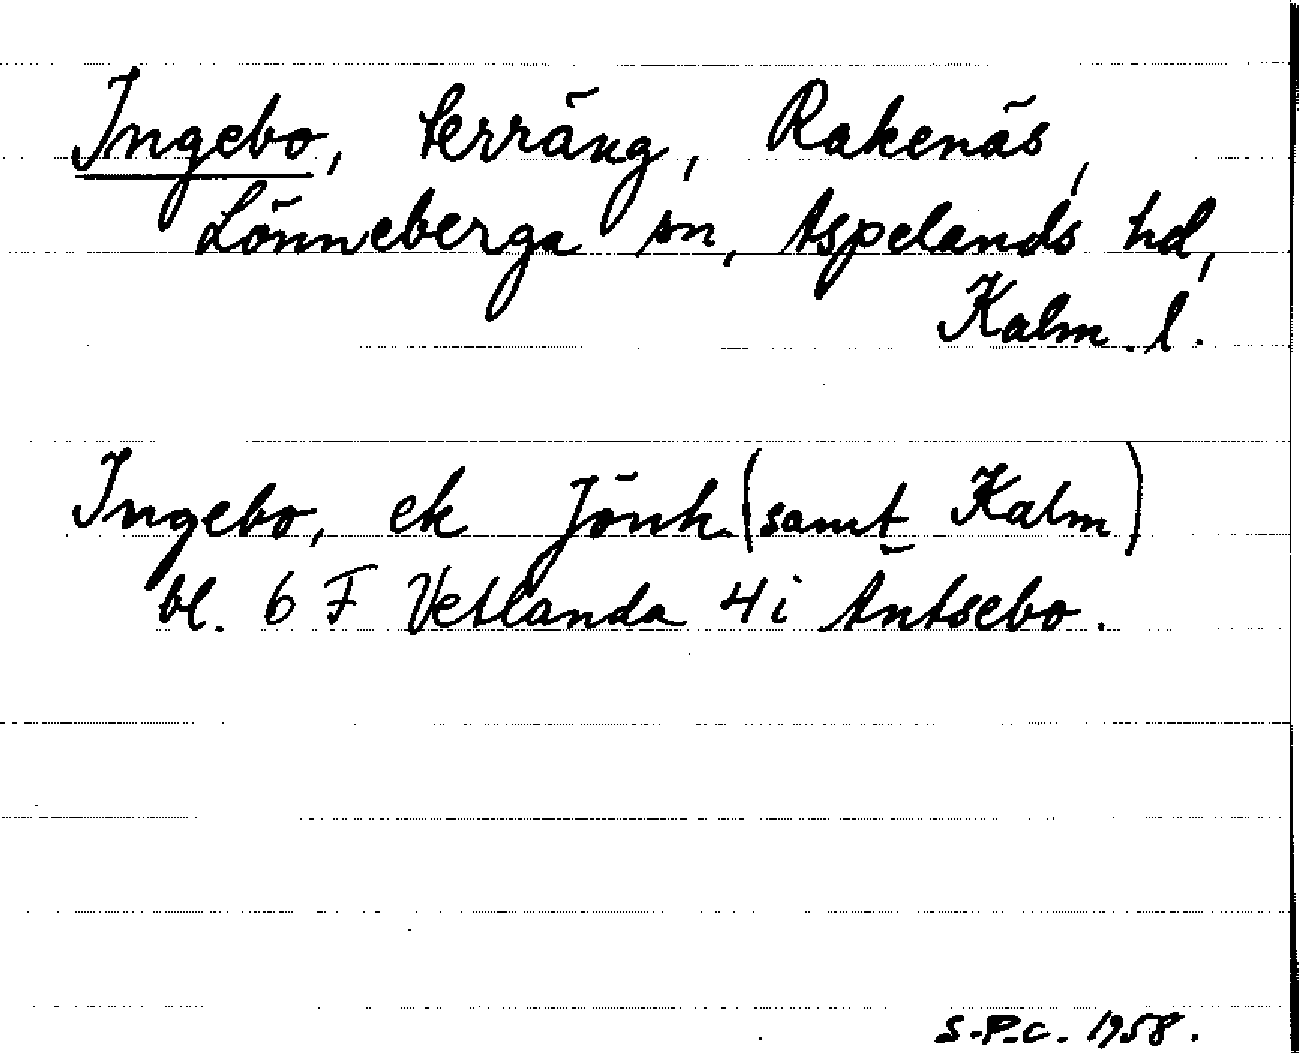 Ingebo, terräng, Rakenäs,
Lönneberga sn, Aspelands hd,
Kalm. l.
Ingebo, ek Jönk. (samt Kalm)
bl. 6 F Vetlanda 4i Äntsebo.
S.-P.c. 1958.